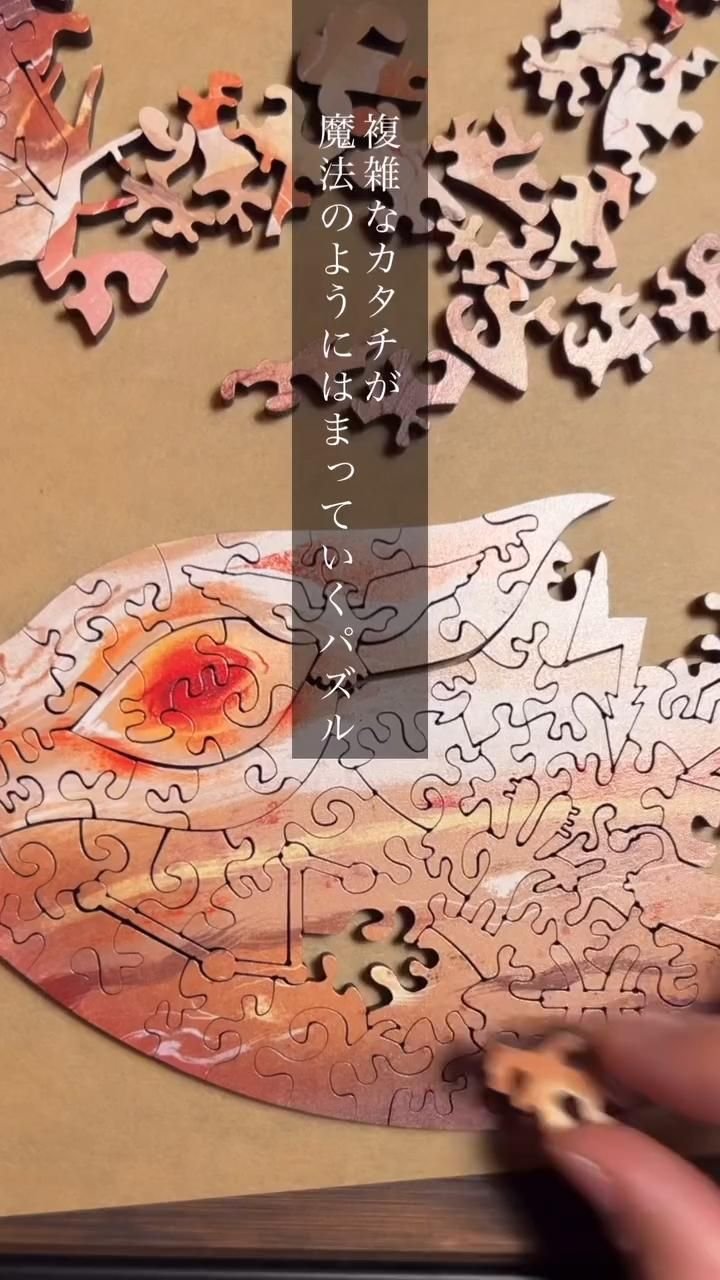 複雑なカタチが
魔法のようにはまっていくパズル